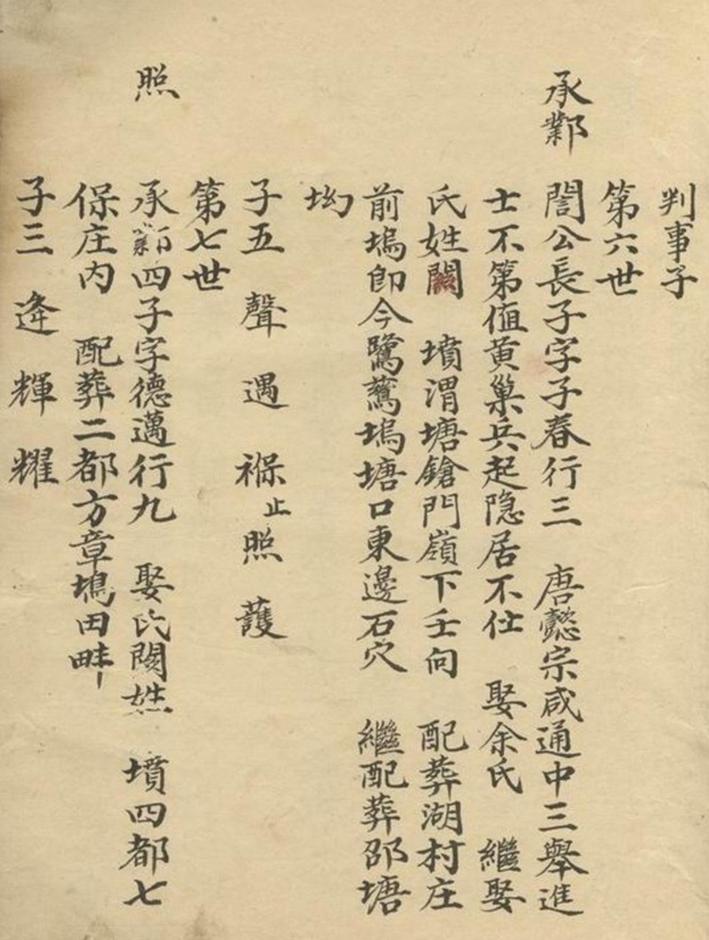 判事子
第六世
承鄴 誾公長子字子春行三 唐懿宗咸通中三舉進
士不第值黄巢兵起隐居不仕 娶余氏 繼娶
氏姓闕 墳渭塘鎗門嶺下壬向 配葬湖村庄
前塢卽今鷺鷥塢塘口東邊石穴 繼配葬邵塘
坳
子五 聲 遇 褓止 照 護
第七世
照 承鄴四子字德邁行九 娶氏闕姓 墳四都七
保庄内 配葬二都方章塢田畔
子三 逄 輝 耀